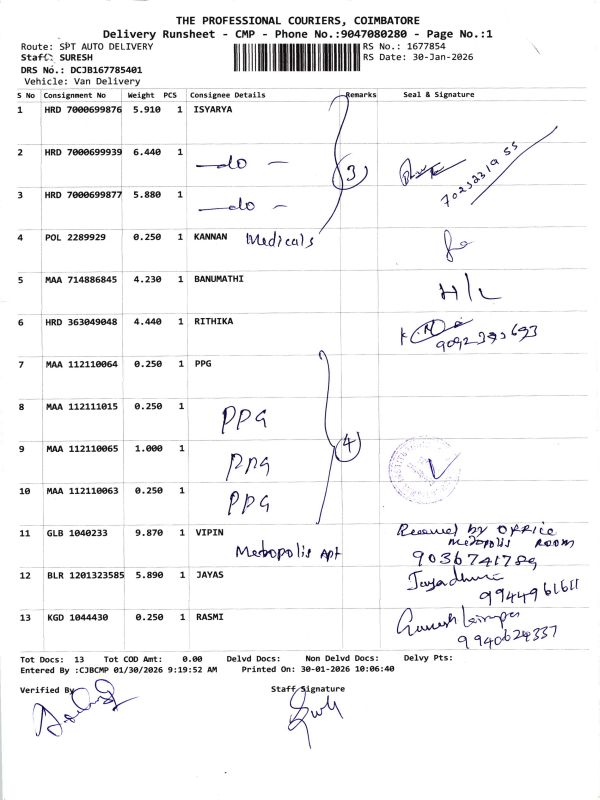 THE PROFESSIONAL COURIERS, COIMBATORE
Delivery Runsheet - CMP - Phone No.:9047080280 - Page No.:1
Route: SPT AUTO DELIVERY
RS No.: 1677854
Staff: SURESH
RS Date: 30-Jan-2026
DRS No.: DCJB167785401
Vehicle: Van Delivery
S No Consignment No Weight PCS Consignee Details Remarks Seal & Signature
1 HRD 7000699876 5.910 1 ISYARYA
2 HRD 7000699939 6.440 1 —do —
3
3 HRD 7000699877 5.880 1 —do —
4 POL 2289929 0.250 1 KANNAN Medicals
5 MAA 714886845 4.230 1 BANUMATHI H/L
6 HRD 363049048 4.440 1 RITHIKA
7 MAA 112110064 0.250 1 PPG
8 MAA 112111015 0.250 1 PPG
9 MAA 112110065 1.000 1 PPG
4
10 MAA 112110063 0.250 1 PPG
11 GLB 1040233 9.870 1 VIPIN
Metropolis Apt
Received by OFFICE
Metropolis ROOM
9036741789
12 BLR 1201323585 5.890 1 JAYAS
9944961611
13 KGD 1044430 0.250 1 RASMI
9940624337
Tot Docs: 13 Tot COD Amt: 0.00 Delvd Docs: Non Delvd Docs: Delvy Pts:
Entered By :CJBCMP 01/30/2026 9:19:52 AM Printed On: 30-01-2026 10:06:40
Verified By
Staff Signature